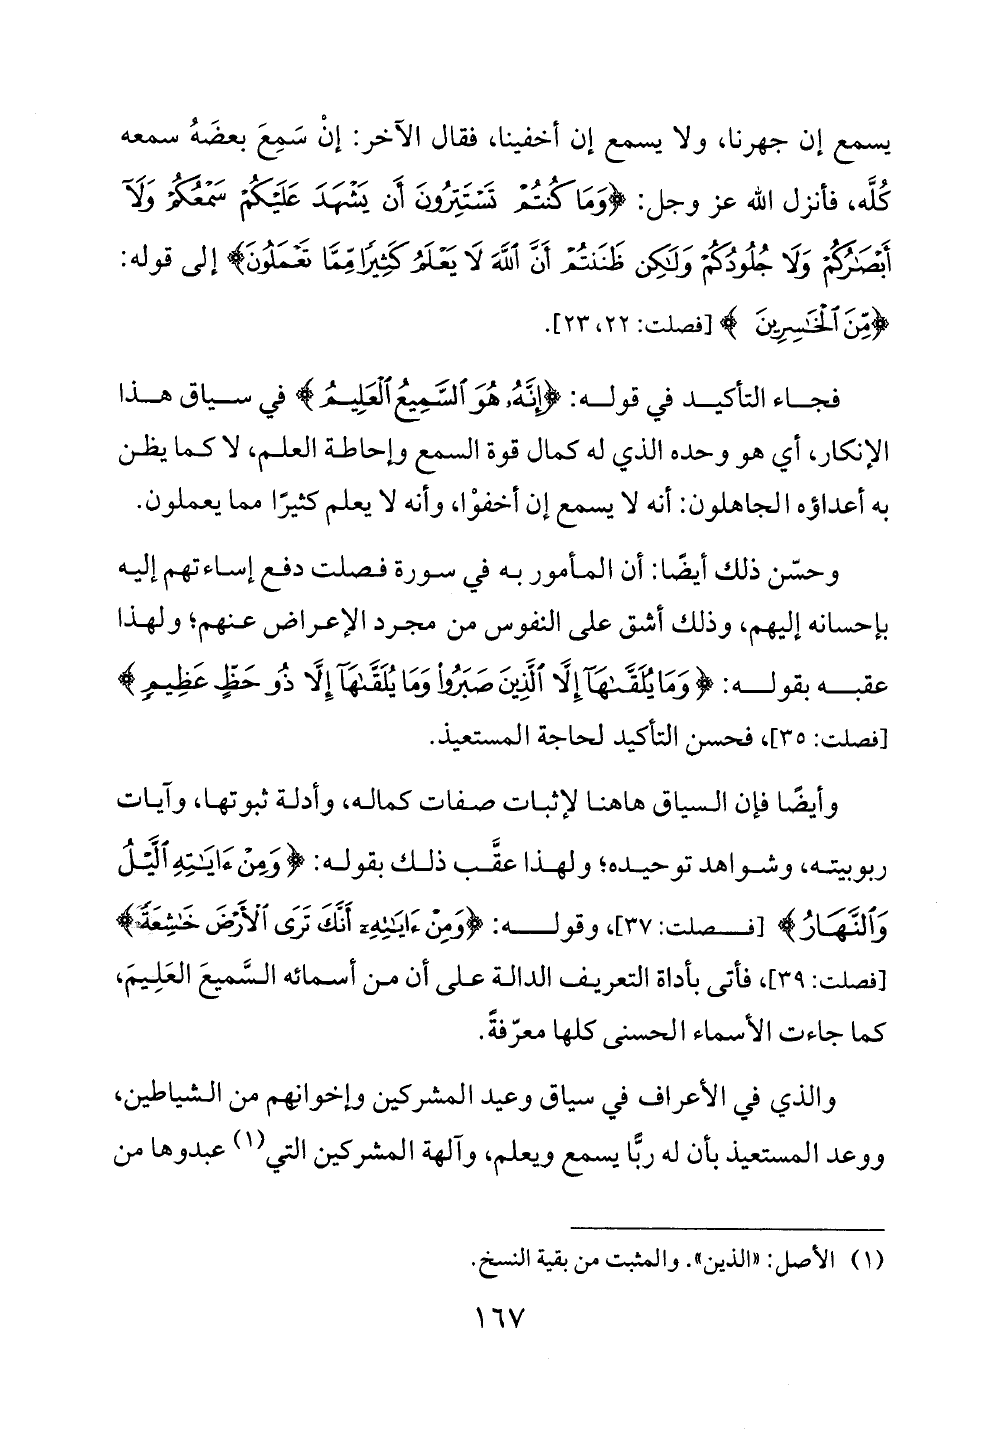 يسمع إن جهرنا، ولا يسمع إن أخفينا، فقال الآخر: إنْ سَمِعَ بعضَهُ سمعه
كُلَّه، فأنزل الله عز وجل: ﴿وَمَا كُنتُمْ تَسْتَتِرُونَ أَن يَشْهَدَ عَلَيْكُمْ سَمْعُكُمْ وَلَآ
أَبْصَٰرُكُمْ وَلَا جُلُودُكُمْ وَلَٰكِن ظَنَنتُمْ أَنَّ ٱللَّهَ لَا يَعْلَمُ كَثِيرًا مِّمَّا تَعْمَلُونَ﴾ إلى قوله:
﴿مِّنَ ٱلْخَٰسِرِينَ ﴾ [فصلت: ٢٢، ٢٣].
فجاء التأكيد في قوله: ﴿إِنَّهُۥ هُوَ ٱلسَّمِيعُ ٱلْعَلِيمُ﴾ في سياق هذا
الإنكار، أي هو وحده الذي له كمال قوة السمع وإحاطة العلم، لا كما يظن
به أعداؤه الجاهلون: أنه لا يسمع إن أخفوْا، وأنه لا يعلم كثيرًا مما يعملون.
وحسّن ذلك أيضًا: أن المأمور به في سورة فصلت دفع إساءتهم إليه
بإحسانه إليهم، وذلك أشق على النفوس من مجرد الإعراض عنهم؛ ولهذا
عقبه بقوله: ﴿وَمَا يُلَقَّىٰهَآ إِلَّا ٱلَّذِينَ صَبَرُوا۟ وَمَا يُلَقَّىٰهَآ إِلَّا ذُو حَظٍّ عَظِيمٍ﴾
[فصلت: ٣٥]، فحسن التأكيد لحاجة المستعيذ.
وأيضًا فإن السياق هاهنا لإثبات صفات كماله، وأدلة ثبوتها، وآيات
ربوبيته، وشواهد توحيده؛ ولهذا عقَّب ذلك بقوله: ﴿وَمِنْ ءَايَٰتِهِ ٱلَّيْلُ
وَٱلنَّهَارُ﴾ [فصلت: ٣٧]، وقوله: ﴿وَمِنْ ءَايَٰتِهِۦٓ أَنَّكَ تَرَى ٱلْأَرْضَ خَٰشِعَةً﴾
[فصلت: ٣٩]، فأتى بأداة التعريف الدالة على أن من أسمائه السَّميعَ العَلِيمَ،
كما جاءت الأسماء الحسنى كلها معرّفةً.
والذي في الأعراف في سياق وعيد المشركين وإخوانهم من الشياطين،
ووعد المستعيذ بأن له ربًّا يسمع ويعلم، وآلهة المشركين التي(١) عبدوها من
(١) الأصل: «الذين». والمثبت من بقية النسخ.
١٦٧